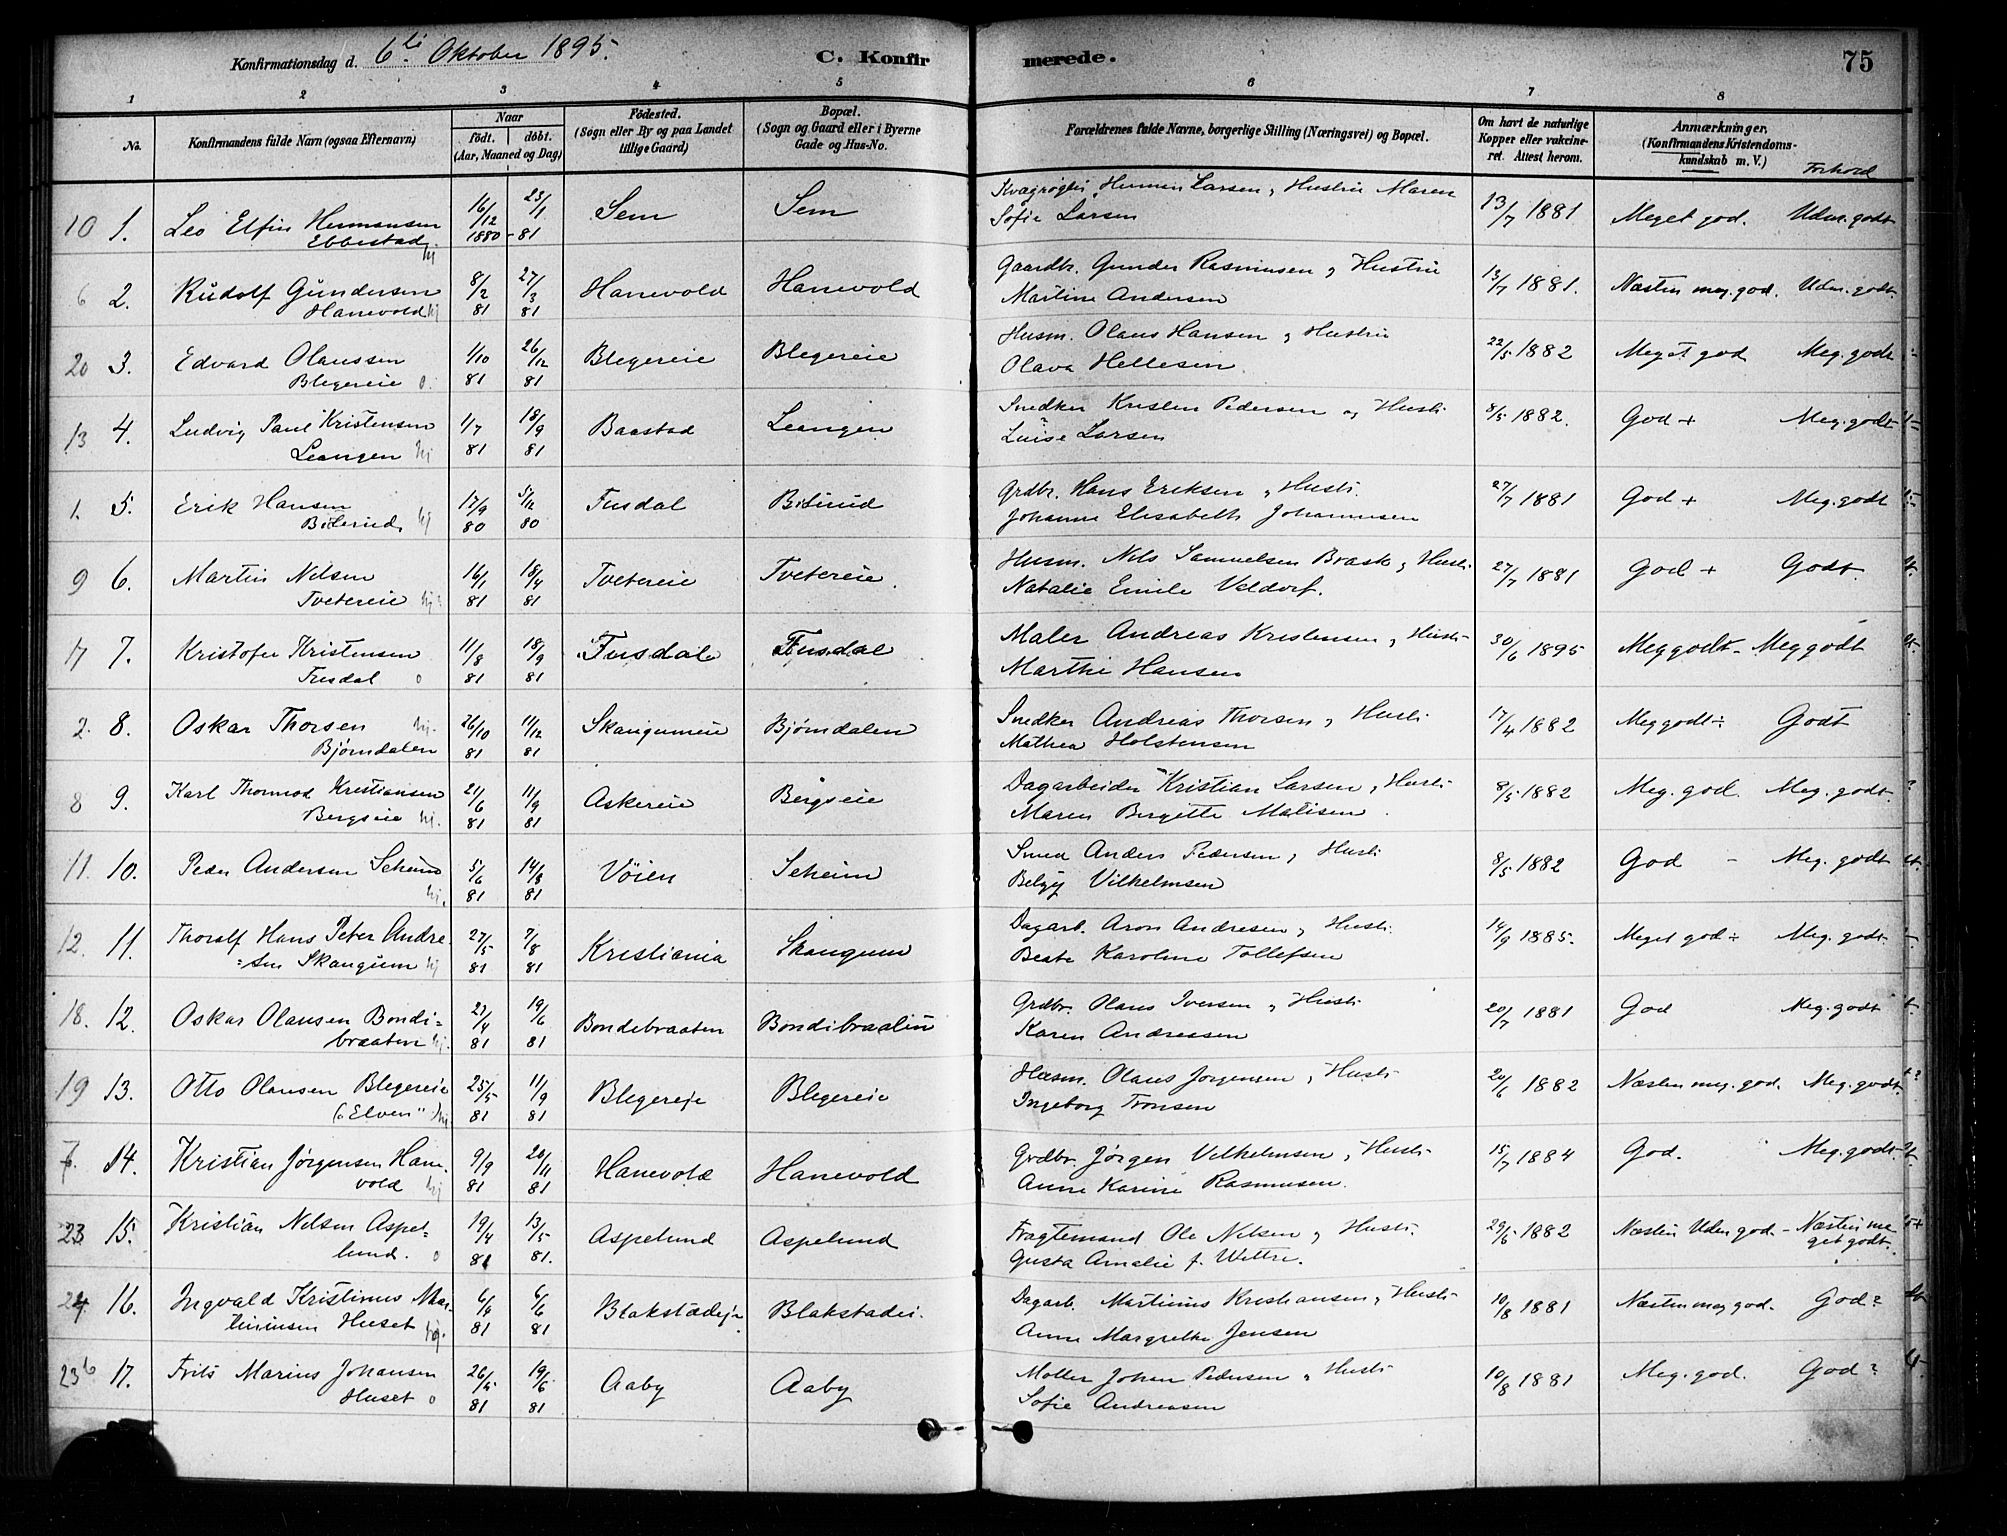 Konfirmationsdag d. 6te Oktober 1895.
C. Konfirmerede.
75
1 2 3 4 5 6 7 8
No.
Konfirmandens fulde Navn (ogsaa Efternavn)
Naar
født. døbt.
(Aar, Maaned og Dag)
Fødested.
(Sogn eller By og paa Landet
tillige Gaard)
Bopæl.
(Sogn og Gaard eller i Byerne
Gade og Hus-No.
Forældrenes fulde Navne, borgerlige Stilling (Næringsvei) og Bopæl.
Om havt de naturlige
Kopper eller vakcine-
ret. Attest herom.
Anmærkninger.
(Konfirmandens Kristendoms-
kundskab m. V.)
Forhold
10 1. Leo Elfin Hermansen 16/12 23/1 Sem Sem Hermen Larsen, Hustru Maren 13/7 1881 Meget god. Udm. godt
Ebbestad hj 1880 - 81 Sofie Larsen
6 2. Rudolf Gundersen 8/2 27/3 Hanevold Hanevold Gaardbr. Gunder Rasmussen, Hustru 13/7 1881. Næsten meg. god. Udm. godt.
Hanevold hj 81 81 Martine Andersen
20 3. Edvard Olaussen 1/10 26/12 Blegereie Blegereie Husm. Olaus Hansen, Hustru 22/5 1882 Meget god Meg. godt
Blegereie o. 81 81 Olava Hellesen
13 4. Ludvig Paul Kristensen 1/7 18/9 Baastad Leangen Snedker Kristen Pedersen og Hustr. 8/5 1882. God + Meg. godt
Leangen hj 81 81 Luise Larsen
1. 5. Erik Hansen 17/9 5/12 Fusdal Bilerud Grdbr. Hans Eriksen, Hustr. 27/7 1881 God + Meg. godt
Bilerud hj 80 80 Johanne Elisabeth Johannesen
9 6. Martin Nilsen 16/1 18/4 Tvetereie Tvetereie. Husm. Nils Samuelsen Brask, Hustr. 27/7 1881 God + Godt
Tvetereie hj. 81 81 Natalie Emile Veldorf.
17 7. Kristofer Kristensen 11/8 18/9 Fusdal Fusdal Maler Andreas Kristensen, Hustr. 30/6 1895 Meg godt - Meg godt
Fusdal o 81 81 Marthe Hansen
2. 8. Oskar Thorsen hj. 26/10 11/12 Skaugumeie Bjørndalen Snedker Andreas Thorsen, Hustr. 17/4 1882 Meg godt ÷ Godt
Bjørndalen 81 81 Mathea Holstensen
8 9. Karl Thormod Kristiansen 21/6 11/9 Askereie Bergseie Dagarbeider Kristian Larsen, Hustr. 8/5 1882 Meg. god. Meg. godt.
Bergseie hj. 81 81 Maren Birgitte Matisen.
11. 10. Peder Andersen Seheim 5/6 14/8 Vøien Seheim Smed Anders Pedersen, Hustr. 8/5 1882 God - Meg. godt
hj. 81 81 Vilhelmsen
12. 11. Thoralf Hans Peter Andre- 27/5 7/8 Kristiania Skaugum Dagarb. Aron Andresen, Hustr. 14/9 1885. Meget god ÷ Meg. godt
=sen Skaugum hj 81 81 Beate Karoline Tollefsen
18. 12. Oskar Olausen Bondi= 23/4 19/6 Bondebraaten Bondibraaten Grdbr. Olaus Iversen, Hustr. 20/7 1881 God Meg. godt
braaten hj. 81 81 Karen Andreasen
19 13. Otto Olausen Blegereie 25/5 11/9 Blegereie Blegereie Husm. Olaus Jorgensen, Hustr. 20/6 1882 Næsten meg. god. Meg. godt.
("Elven") hj 81 81 Ingeborg Tronsen
7. 14. Kristian Jørgensen Hane- 9/9 20/11 Hanevold Hanevold Grdbr. Jørgen Vilhelmsen, Hustr. 15/7 1884 God. Meg. godt.
vold hj 81 81 Anne Karine Rasmussen.
23 15. Kristian Nilsen Aspe- 19/4 13/5 Aspelund Aspelund Fragtemand Ole Nilsen, Hustr. 29/5 1882 Næsten Udm god - Næsten me
lund. o 81 81. Gusta Amalie f. Wettre. get godt.
24 16. Ingvald Kristinus Mar- 6/4 6/6 Blakstadeje Blakstadei. Dagarb. Martinus Kristiansen, Hustr. 10/8 1881 Næsten meg god. God?
tinusen Huset hj. 81 81 Anne Margrethe Jensen
23b 17. Frits Marius Johansen 26/4 19/6 Aaby Aaby Møller Johan Pedersen, Hustr. 10/8 1881 Meg. god. God?
Huset o 81 81 Sofie Andreasen